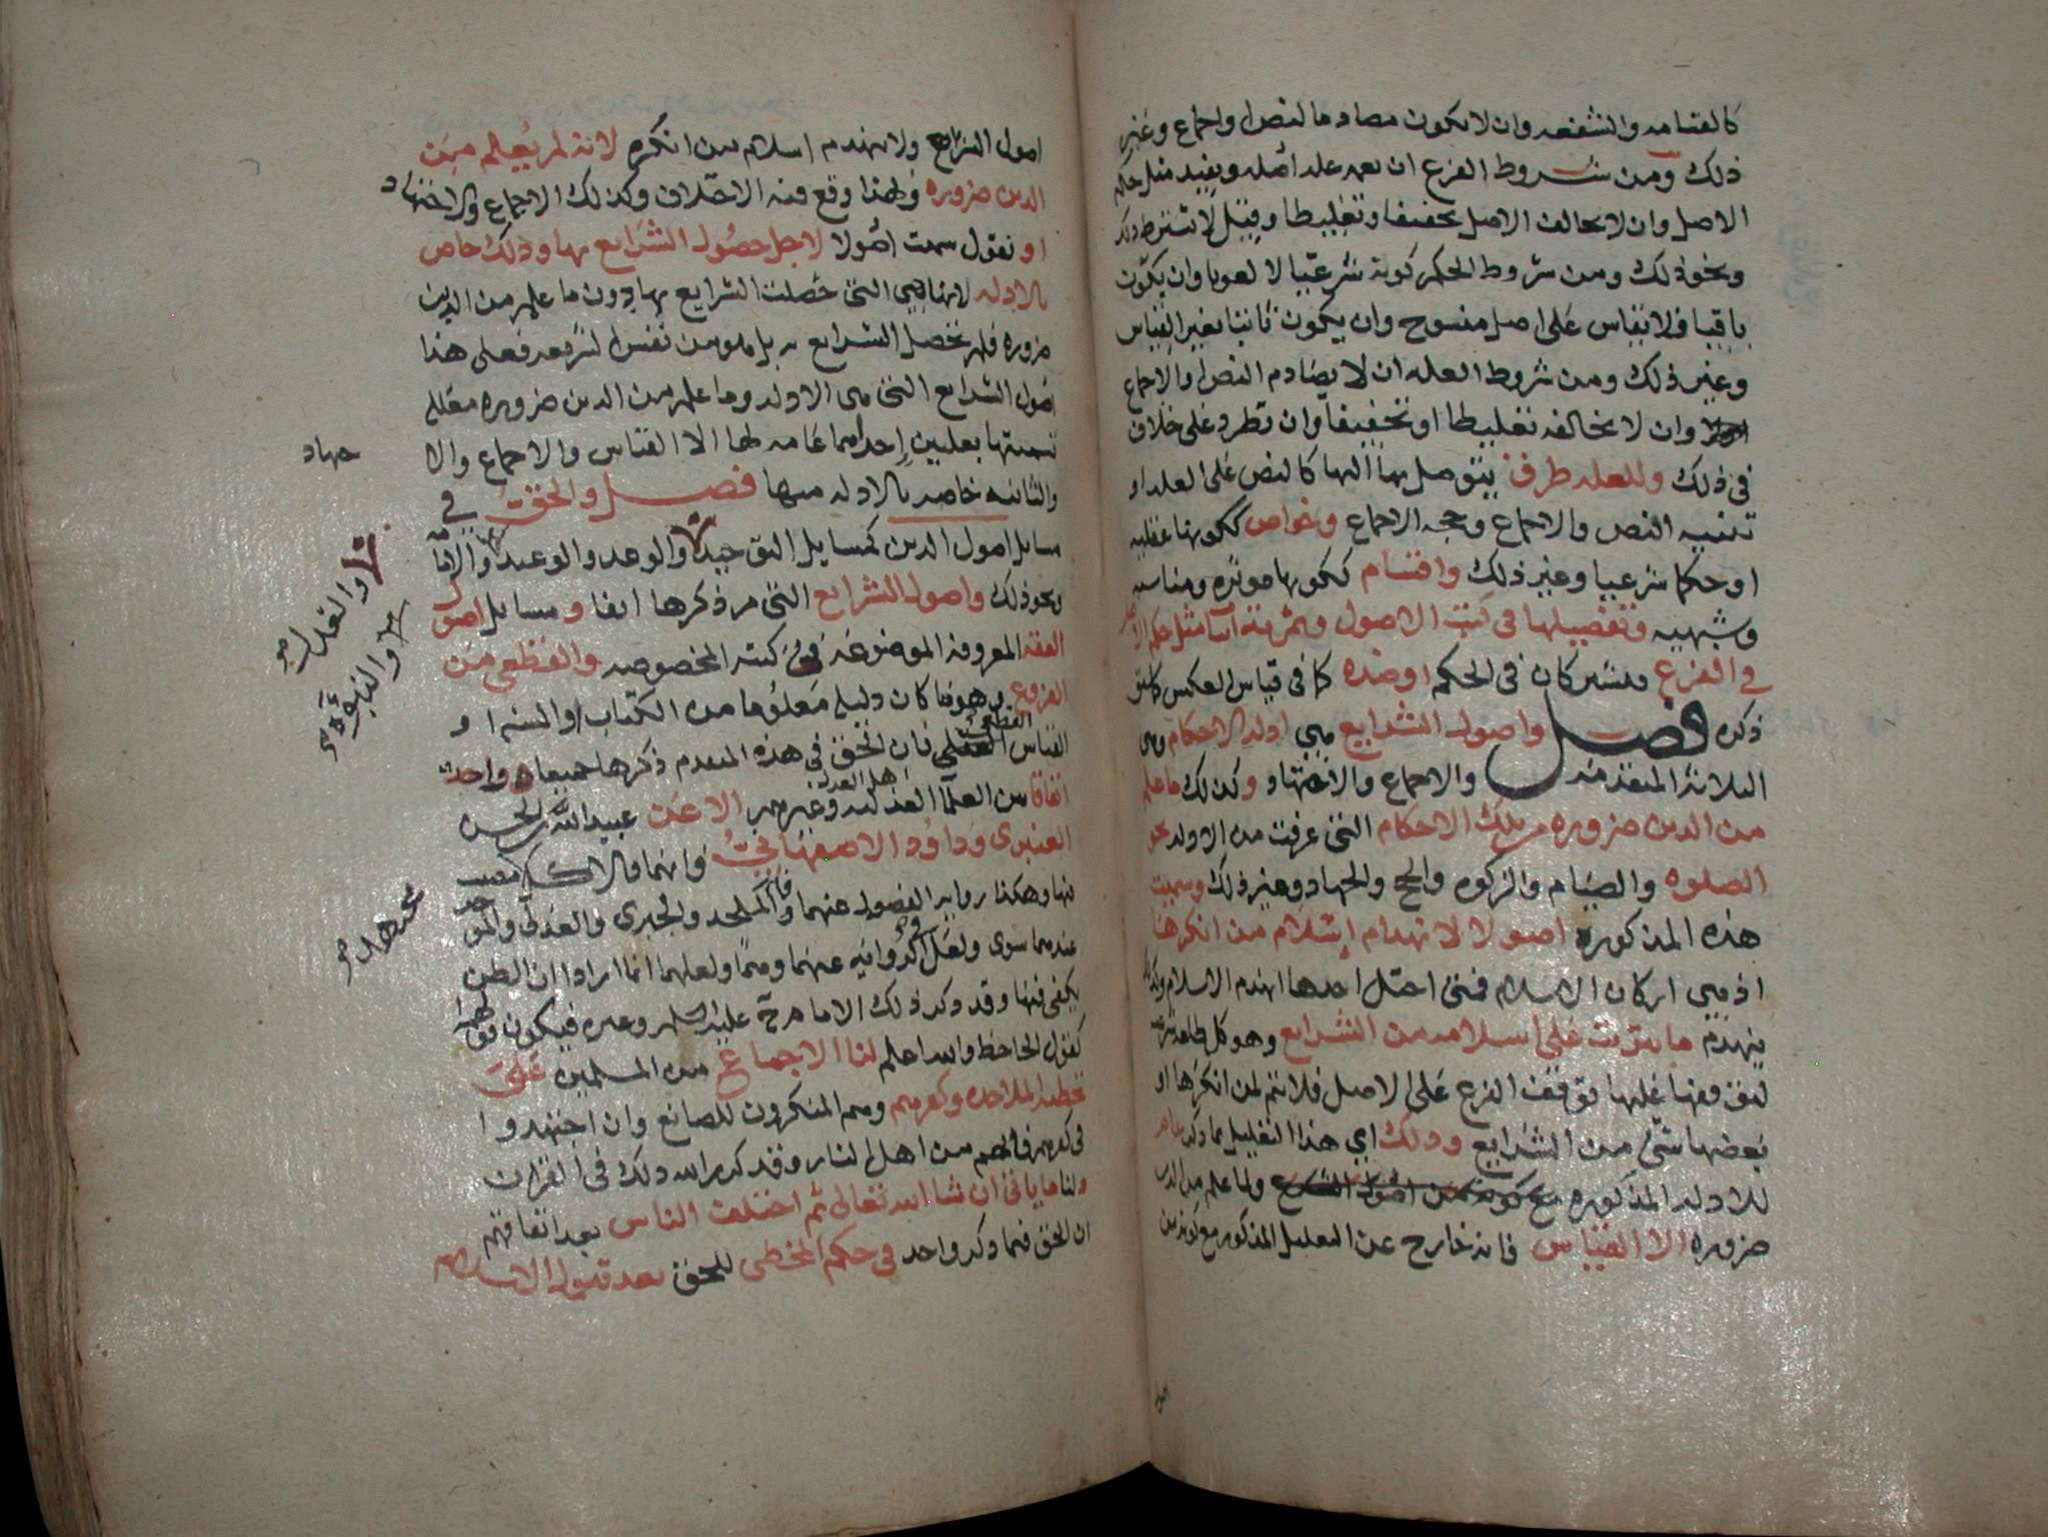 كالقسامه والشفعه وان لا يكون مصادما لنص او اجماع وغير
ذلك ومن شروط الفرع ان يعمه علة اصله ويفيد مثل حكم
الاصل وان لا يخالف الاصل تخفيفا وتغليظا وقيل لا يشترط ذلك
ونحو ذلك ومن شروط الحكم كونه شرعيا لا لغويا وان يكون
باقيا فلا يقاس على اصل منسوخ وان يكون ثابتا بغير القياس
وغير ذلك ومن شروط العله ان لا يصادم النص او الاجماع
وان لا يخالفه تغليظا او تخفيفا وان تطرد على خلاف
في ذلك وللعله طرق يتوصل بها اليها كالنص على العله او
تنبيه النص والاجماع وحجه الاجماع وخواص ككونها عقليه
او حكما شرعيا وغير ذلك واقسام ككونها موثره ومناسبه
وشبهيه وتفصيلها في كتب الاصول وثمرته اما مثل حكم الاصل
في الفرع فيشتركان في الحكم او ضده كما في قياس العكس كما سبق
ذكره فصل واصول الشرايع هي ادلة الاحكام وهي
الثلاثة المتقدمه والاجماع والاجتهاد وكذلك ما علم
من الدين ضروره من تلك الاحكام التي عرفت من الادله نحو
الصلوه والصيام والزكوه والحج والجهاد وغير ذلك وسميت
هذه المذكوره اصولا لانهدام اسلام من انكرها
اذ هي اركان الاسلام فمتى اختل احدها انهدم الاسلام وكذلك
ينهدم ما يترتب على اسلامه من الشرايع وهو كل طاعه شرعيه
لتوقفها عليها توقف الفرع على الاصل فلا تتم لمن انكرها او
بعضها شي من الشرايع وذلك اي هذا التعليل بما ذكر عام
للادله المذكوره ولما علم من الدين
ضروره الا القياس فانه خارج عن التعليل المذكور مع كونه من
اصول الشرايع ولا ينهدم اسلام من انكره لانه لم يعلم من
الدين ضروره ولهذا وقع فيه الاختلاف وكذلك الاجماع والاجتهاد
او نقول سميت اصولا لاجل حصول الشرايع بها وذلك خاص
بالادله لانها هي التي حصلت الشرايع بها دون ما علم من الدين
ضروره فلم تحصل الشرايع به بل هو من نفس الشريعه فعلى هذا
اصول الشرايع التي هي الادله وما علم من الدين ضروره معلل
تسميتها بعلتين احداهما عامه لها الا القياس والاجماع والا
جهاد
والثانيه خاصه بالادله منها فصل والحق في
مسايل اصول الدين كمسايل التوحيد والوعد والوعيد والامامه
والعدل صح
والنبوة صح
ونحو ذلك واصول الشرايع التي مر ذكرها انفا ومسايل اصول
الفقه المعروفه الموضوعه في كتبه المخصوصه والقطعي من
الفروع وهو ما كان دليله معلوما من الكتاب او السنه او
القياس القطعي فان الحق في هذه المتقدم ذكرها جميعا واحد
اتفاقا بين العلما اهل العدل وغيرهم الا عن عبيد الله بن الحسن
العنبري وداود الاصفهاني فانهما قالا كل مجتهد صح مصيب
فيها وهكذا رواية الفصول عنهما قال فالملحد والجبري والعدلي والموحد
عندهما سوى ولعل في الروايه عنهما وهما ولعلهما انما ارادا ان الظن
يكفي فيها وقد ذكر ذلك الامام ح عليه السلم وغيره فيكون قولهما
كقول الجاحظ والله اعلم لنا الاجماع من المسلمين على
تخطئة الملاحده وكفرهم وهم المنكرون للصانع وان اجتهدوا
في كفرهم فانهم من اهل النار وقد كرر الله ذلك في القران
ولنا ما ياتي ان شا الله تعالى ثم اختلف الناس بعد اتفاقهم
ان الحق فيما ذكر واحد في حكم المخطي للحق بعد قبول الاسلام